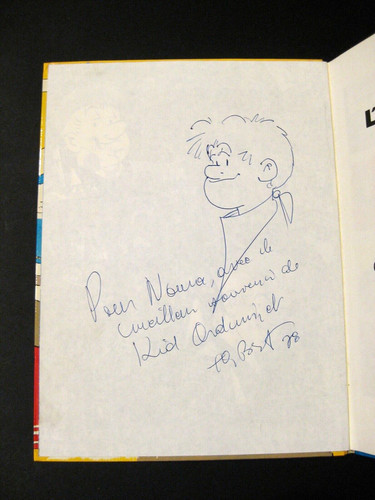 Pour Noura, avec le
meilleur souvenir de
Kid Ordinn et
78
L'